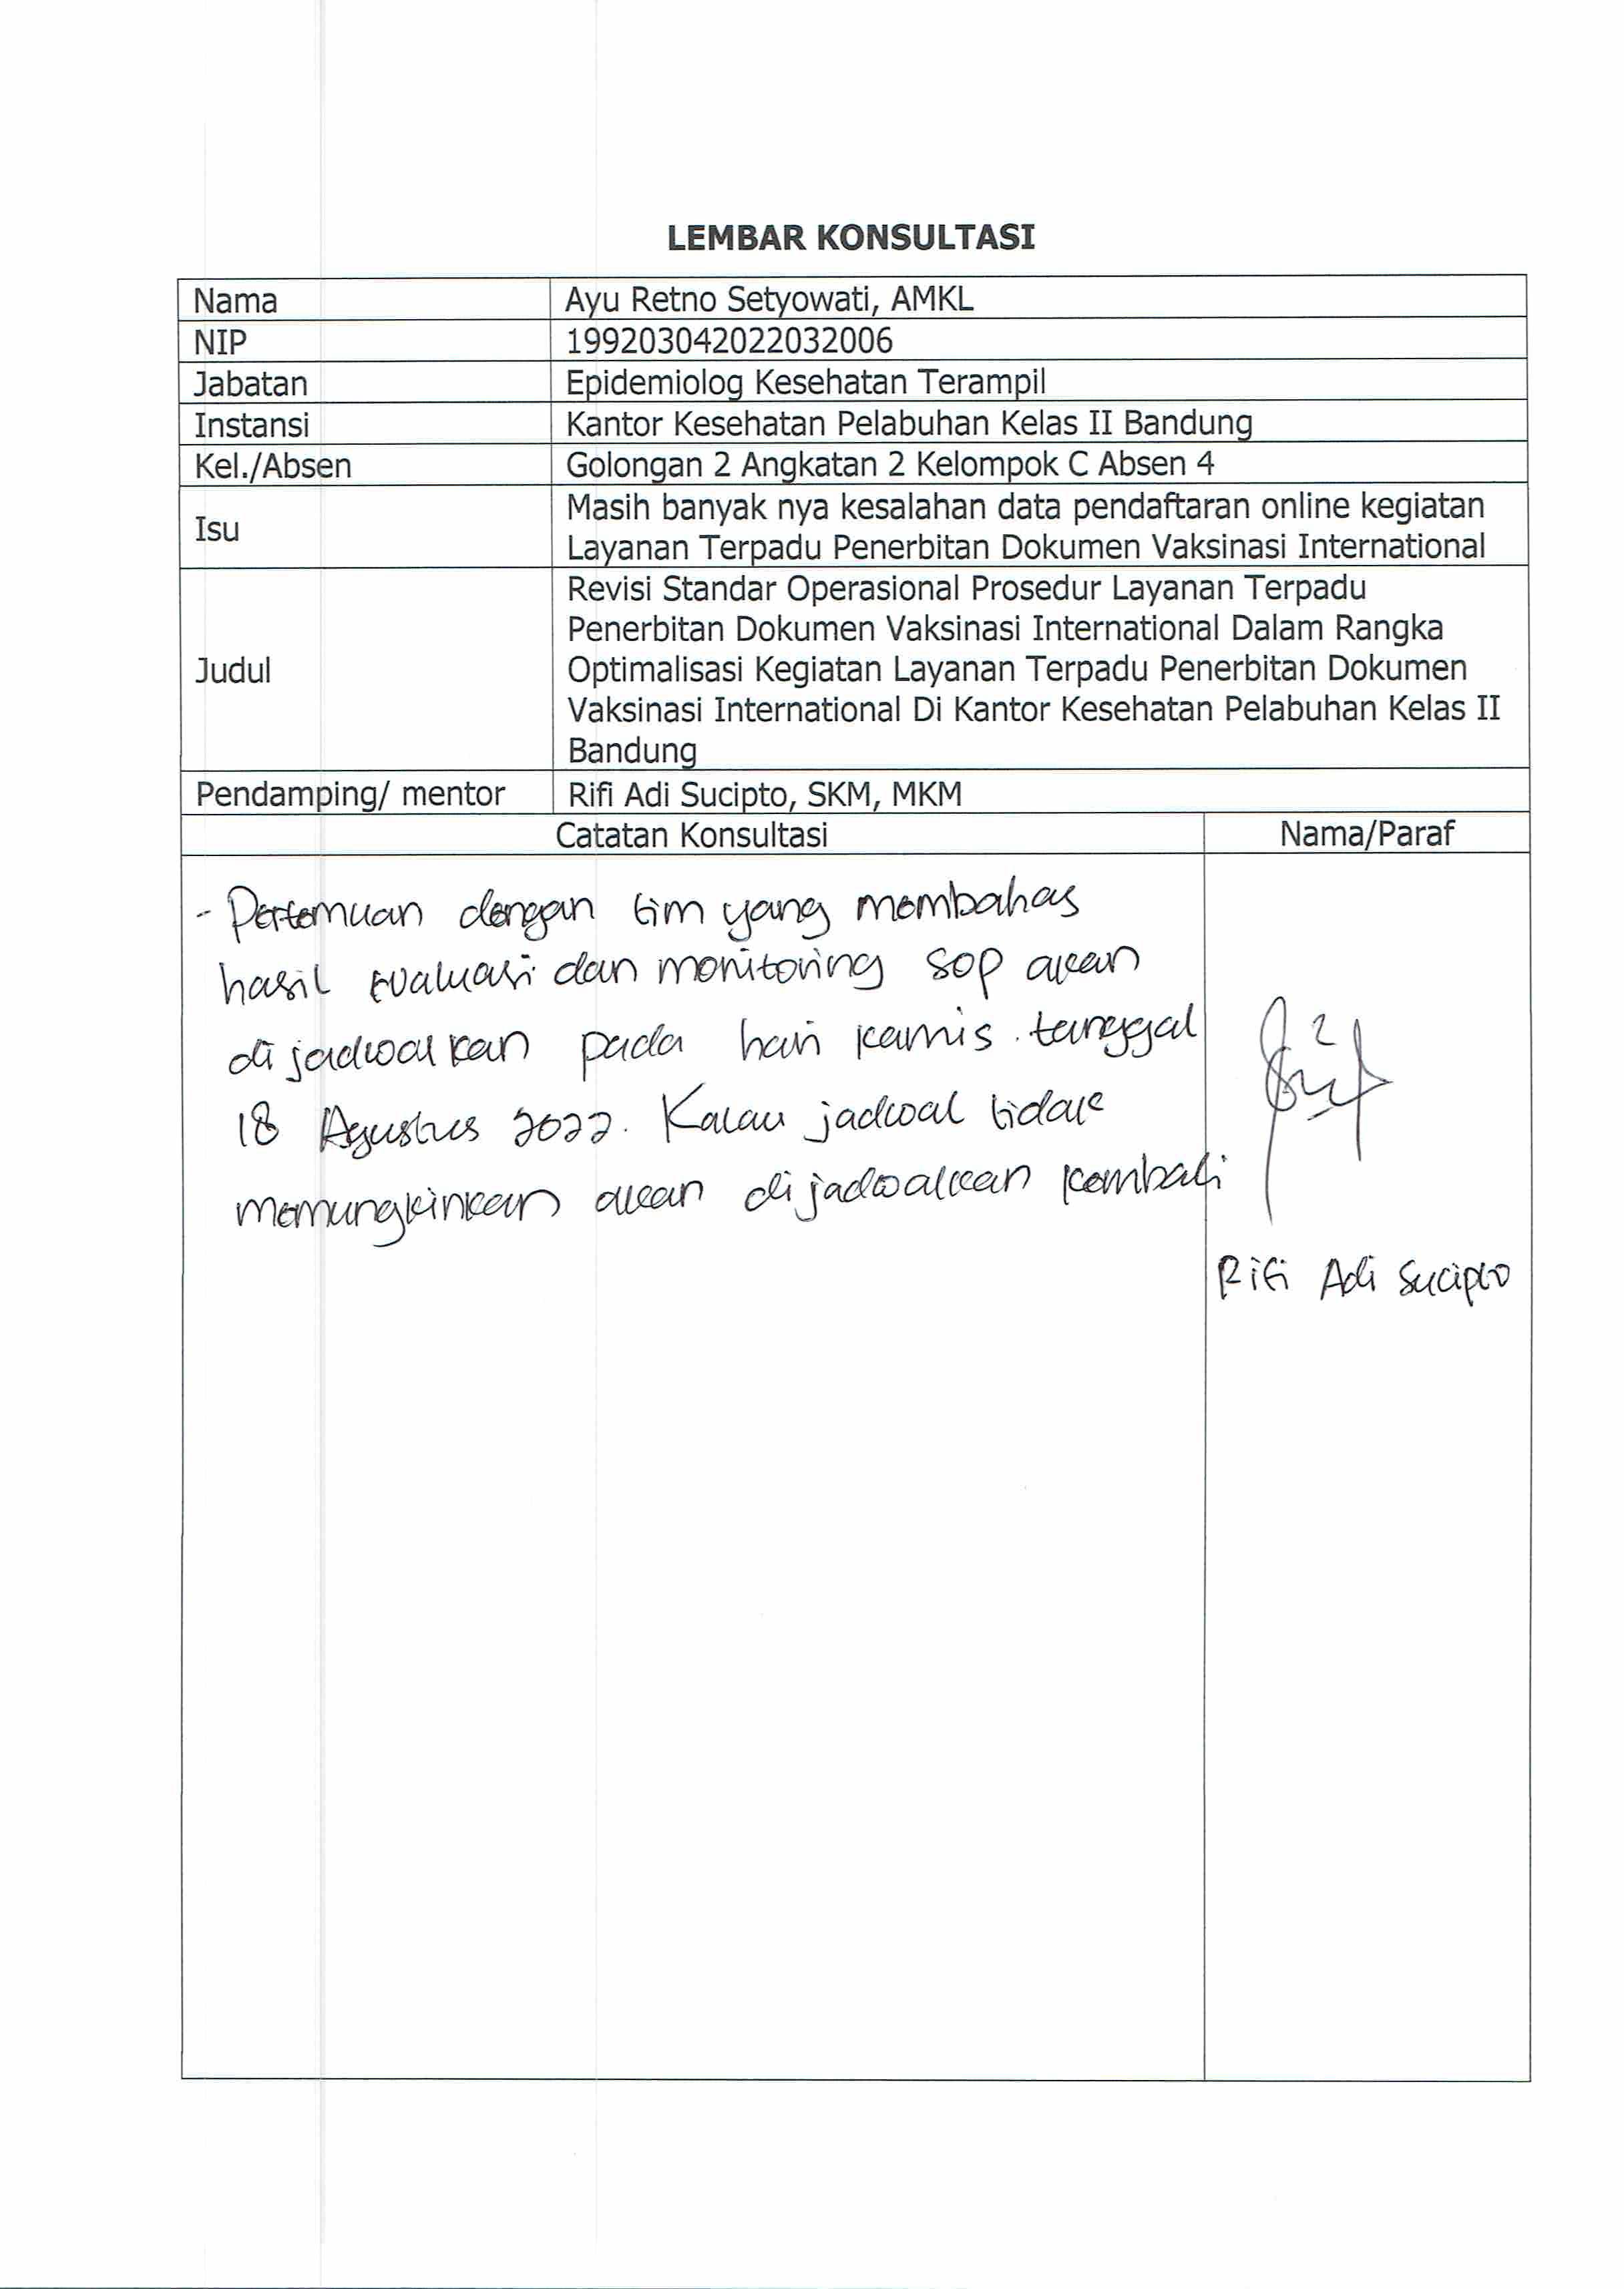 LEMBAR KONSULTASI
Nama Ayu Retno Setyowati, AMKL
NIP 199203042022032006
Jabatan Epidemiolog Kesehatan Terampil
Instansi Kantor Kesehatan Pelabuhan Kelas II Bandung
Kel./Absen Golongan 2 Angkatan 2 Kelompok C Absen 4
Isu Masih banyak nya kesalahan data pendaftaran online kegiatan
Layanan Terpadu Penerbitan Dokumen Vaksinasi International
Judul Revisi Standar Operasional Prosedur Layanan Terpadu
Penerbitan Dokumen Vaksinasi International Dalam Rangka
Optimalisasi Kegiatan Layanan Terpadu Penerbitan Dokumen
Vaksinasi International Di Kantor Kesehatan Pelabuhan Kelas II
Bandung
Pendamping/ mentor Rifi Adi Sucipto, SKM, MKM
Catatan Konsultasi Nama/Paraf
- Pertemuan dengan tim yang membahas
hasil evaluasi dan monitoring SOP akan
dijadwalkan pada hari kamis tanggal
18 Agustus 2022. Kalau jadwal tidak
memungkinkan akan dijadwalkan kembali
Rifi Adi Sucipto